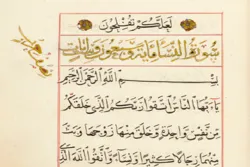 لعلكم تفلحون
سورة النساء مائة و سبعون و ... آيات
بسم الله الرحمن الرحيم
يا ايها الناس اتقوا ربكم الذي خلقكم
من نفس واحدة وخلق منها زوجها وبث
منهما رجالا كثيرا ونساء واتقوا الله الذي